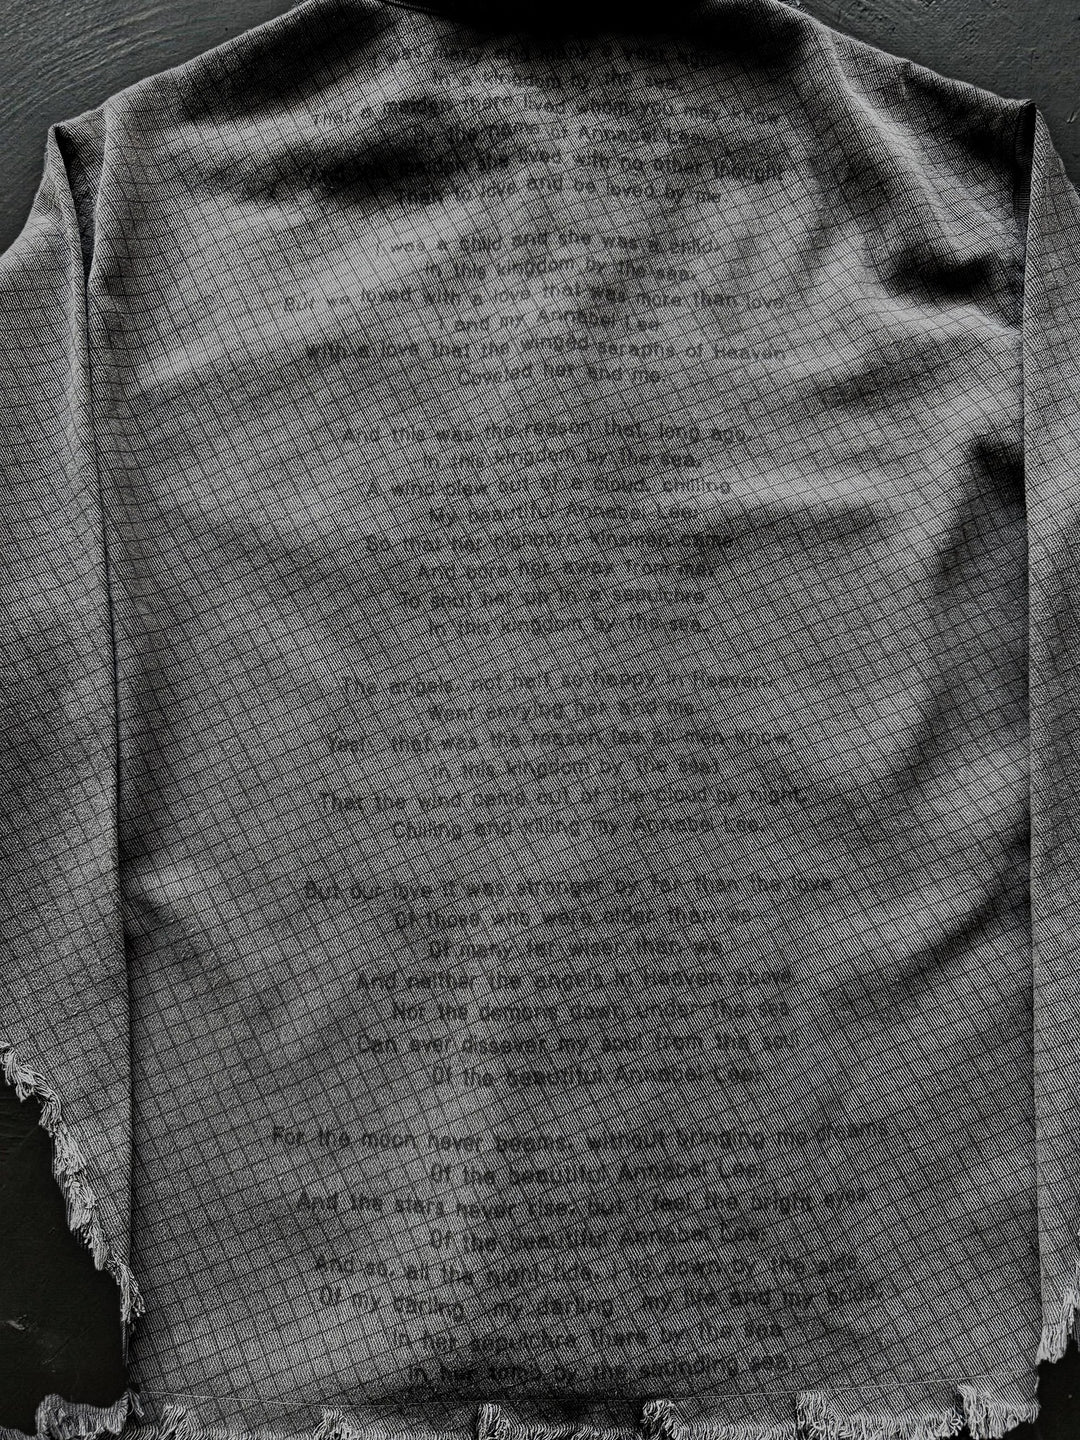 many and many a year ago
In a kingdom by the sea,
That a maiden there lived whom you may know
By the name of Annabel Lee;
And this maiden she lived with no other thought
Than to love and be loved by me.
I was a child and she was a child,
In this kingdom by the sea,
But we loved with a love that was more than love
I and my Annabel Lee
With a love that the winged seraphs of Heaven
Coveted her and me.
And this was the reason that, long ago,
In this kingdom by the sea,
A wind blew out of a cloud, chilling
My beautiful Annabel Lee;
So that her highborn kinsmen came
And bore her away from me,
To shut her up in a sepulchre
In this kingdom by the sea.
The angels, not half so happy in Heaven,
Went envying her and me
Yes! that was the reason (as all men know,
In this kingdom by the sea)
That the wind came out of the cloud by night,
Chilling and killing my Annabel Lee.
But our love it was stronger by far than the love
Of those who were older than we
Of many far wiser than we
And neither the angels in Heaven above
Nor the demons down under the sea
Can ever dissever my soul from the soul
Of the beautiful Annabel Lee;
For the moon never beams, without bringing me dreams
Of the beautiful Annabel Lee;
And the stars never rise, but I feel the bright eyes
Of the beautiful Annabel Lee;
And so, all the night-tide, I lie down by the side
Of my darling my darling my life and my bride,
In her sepulchre there by the sea
In her tomb by the sounding sea.